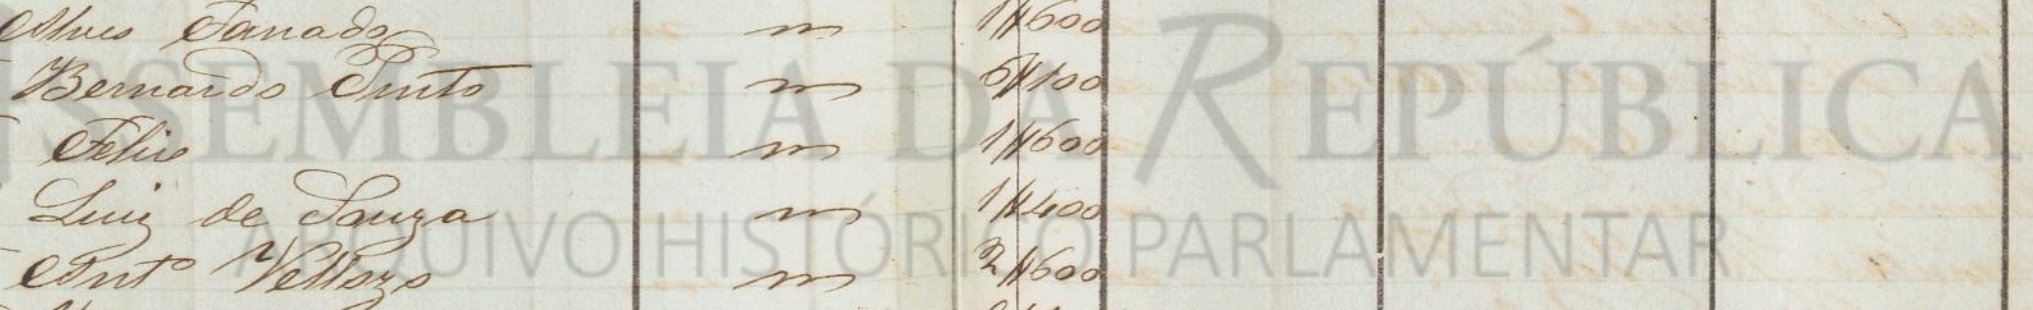 Alves Fanado m 1$600
Bernardo Pinto m 6$100
Felis m 1$600
Luiz de Souza m 1$400
Antº Vellozo m 2$600
ASSEMBLEIA DA REPÚBLICA
ARQUIVO HISTÓRICO PARLAMENTAR